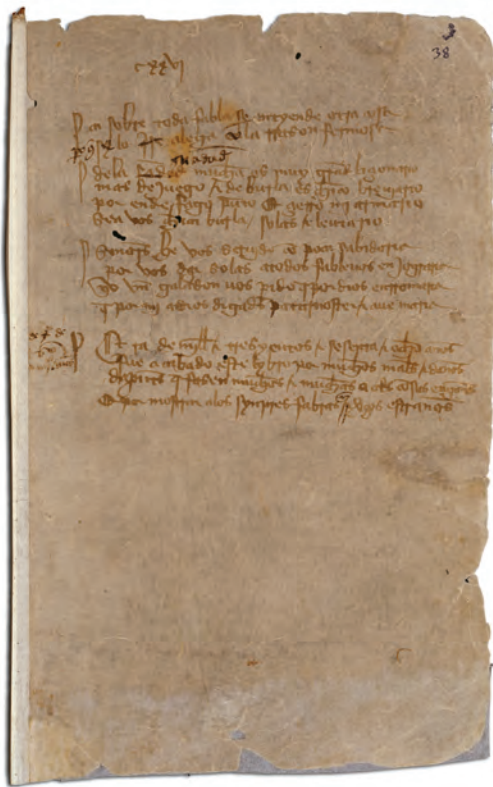 38
cxxvi
sobre toda fabla se entyende otra cosa
lo que se alega la rrason fermosa
de la santidad mucha es muy grand liçionario
mas de juego e de burla es chico breuiario
por ende fago punto e çierro mi armario
sea vos chica burla solas e letuario
Señores he vos seruido con poca sabidoria
por vos dar solas a todos fable vos en jogleria
yo vn galardon vos pido que por dios en rromeria
que por mi a dios digades pater noster e aue maria
Era de mill e tresyentos e sesenta e ocho años
fue acabado este lybro por muchos males e daños
que fasen muchos e muchas a otros con sus engaños
e por mostrar a los synpres fablas e versos estraños